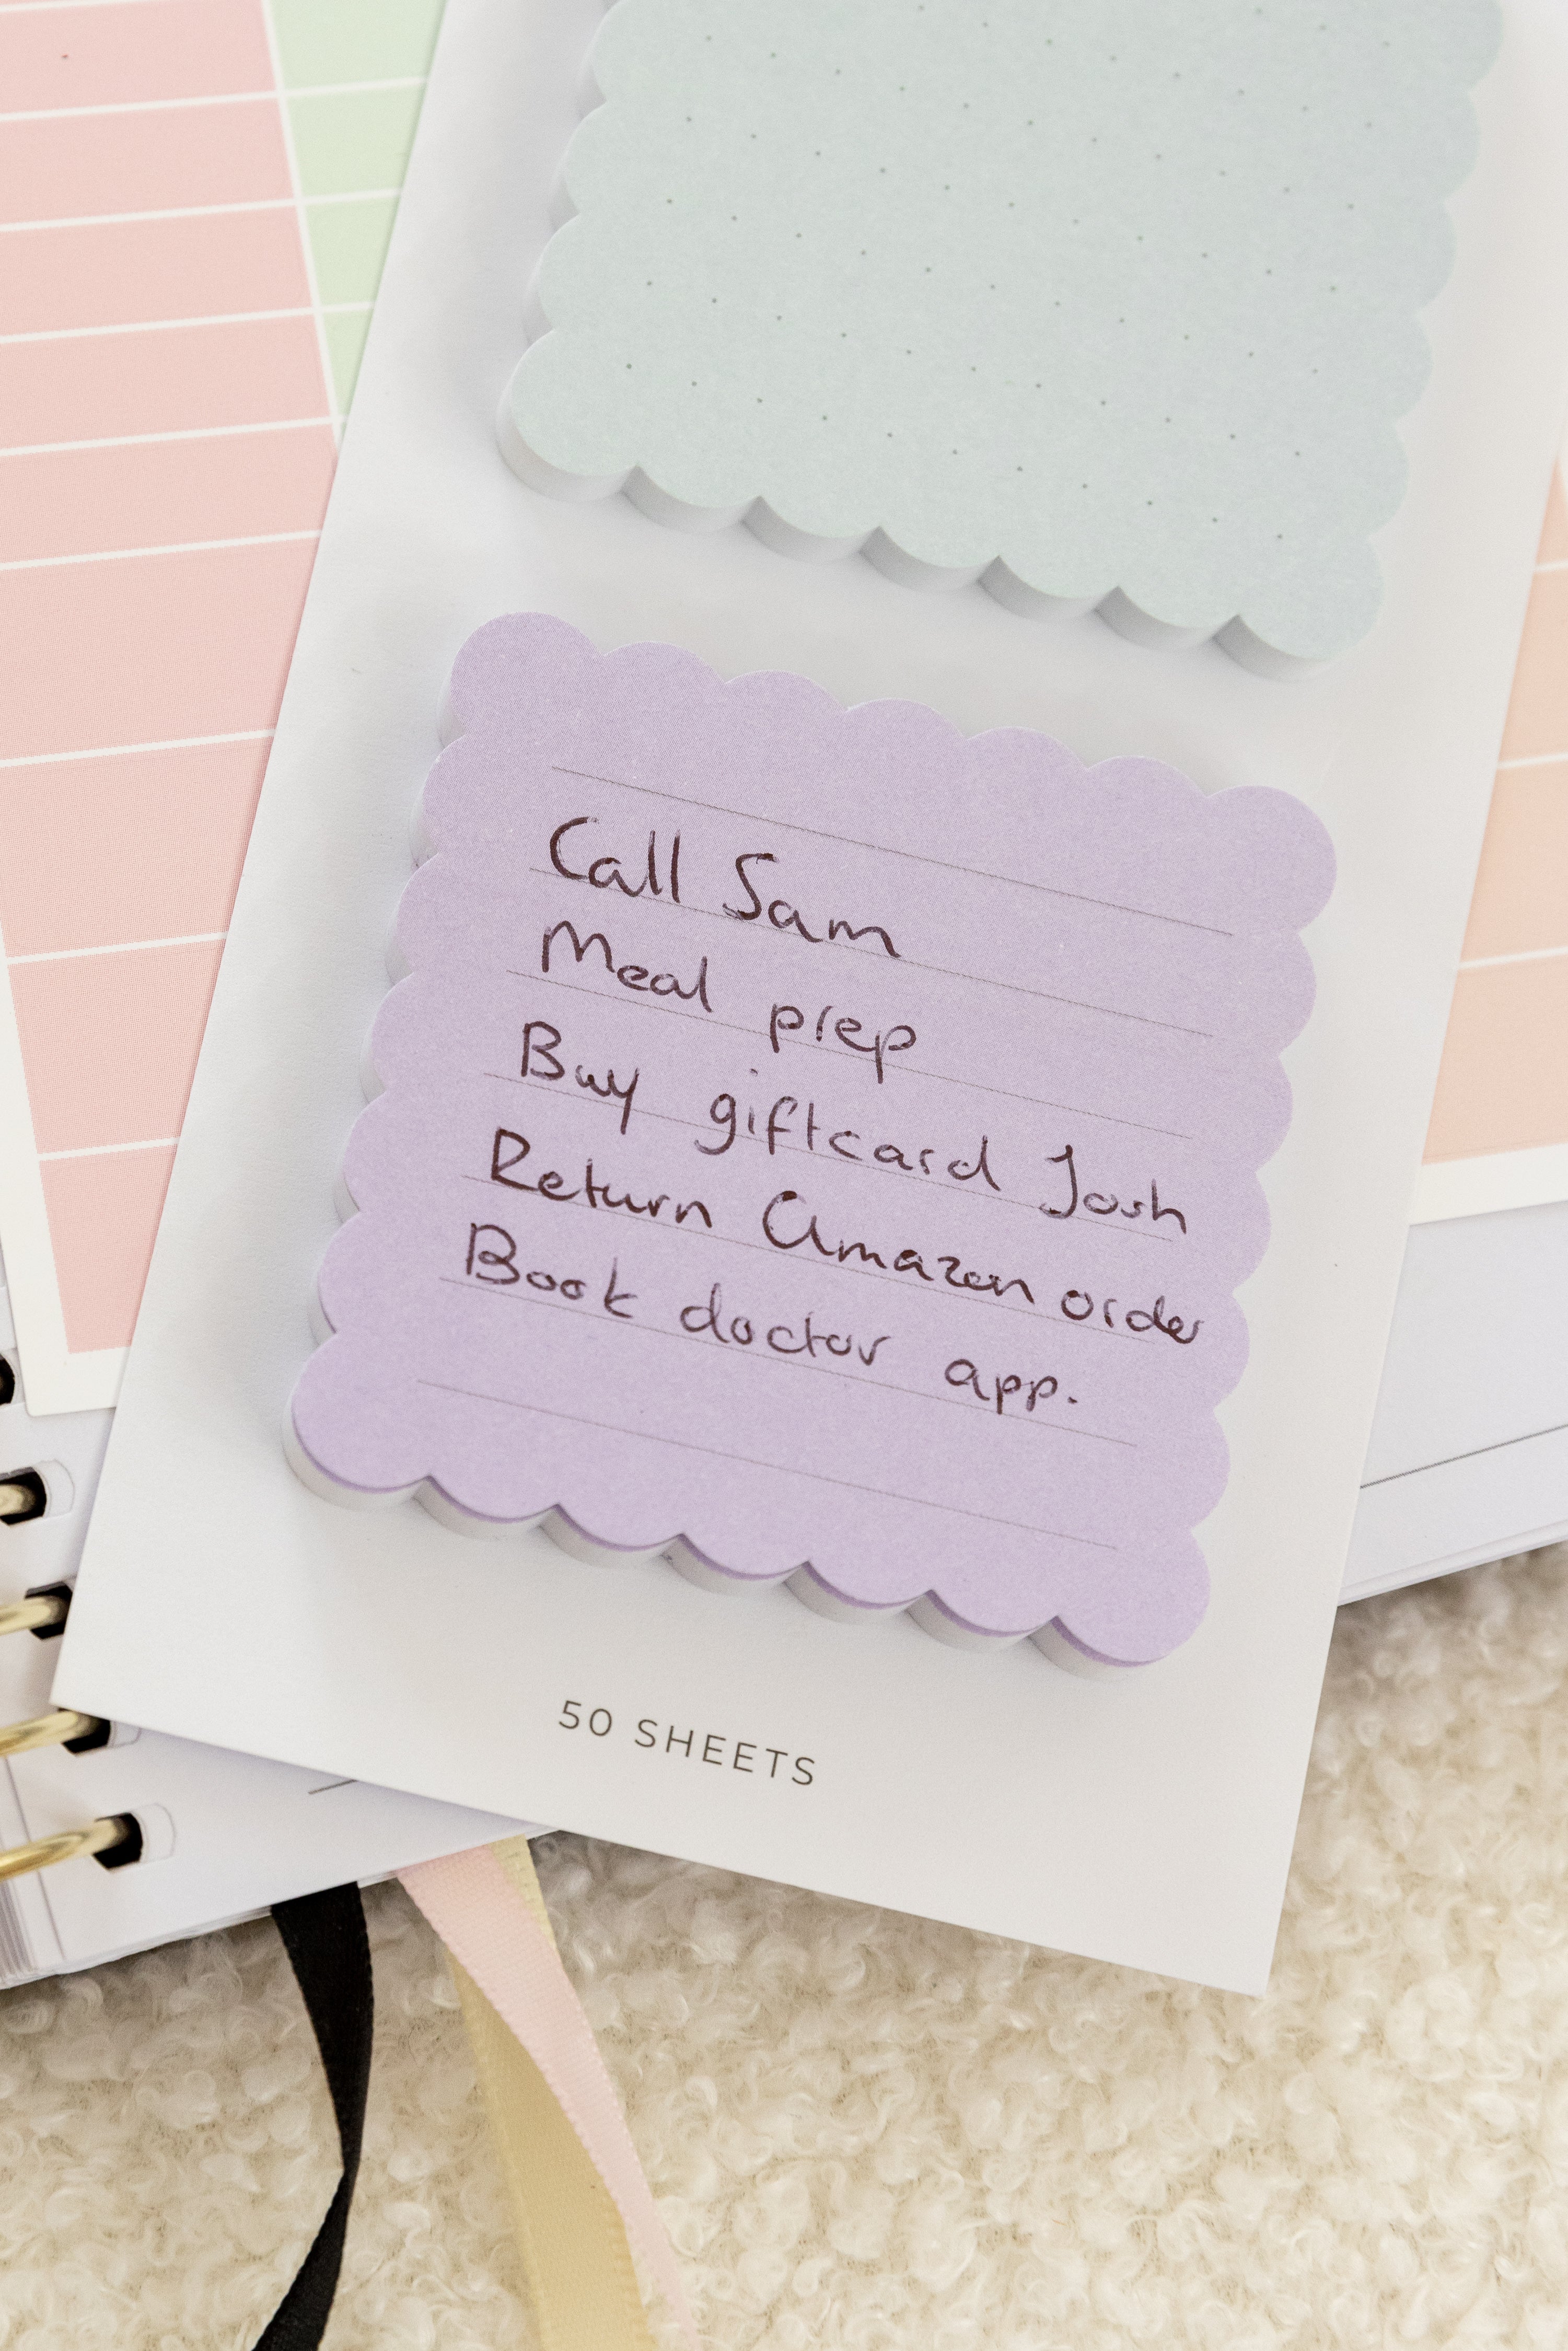 Call Sam
Meal prep
Buy giftcard Josh
Return Amazon order
Book doctor app.
50 SHEETS